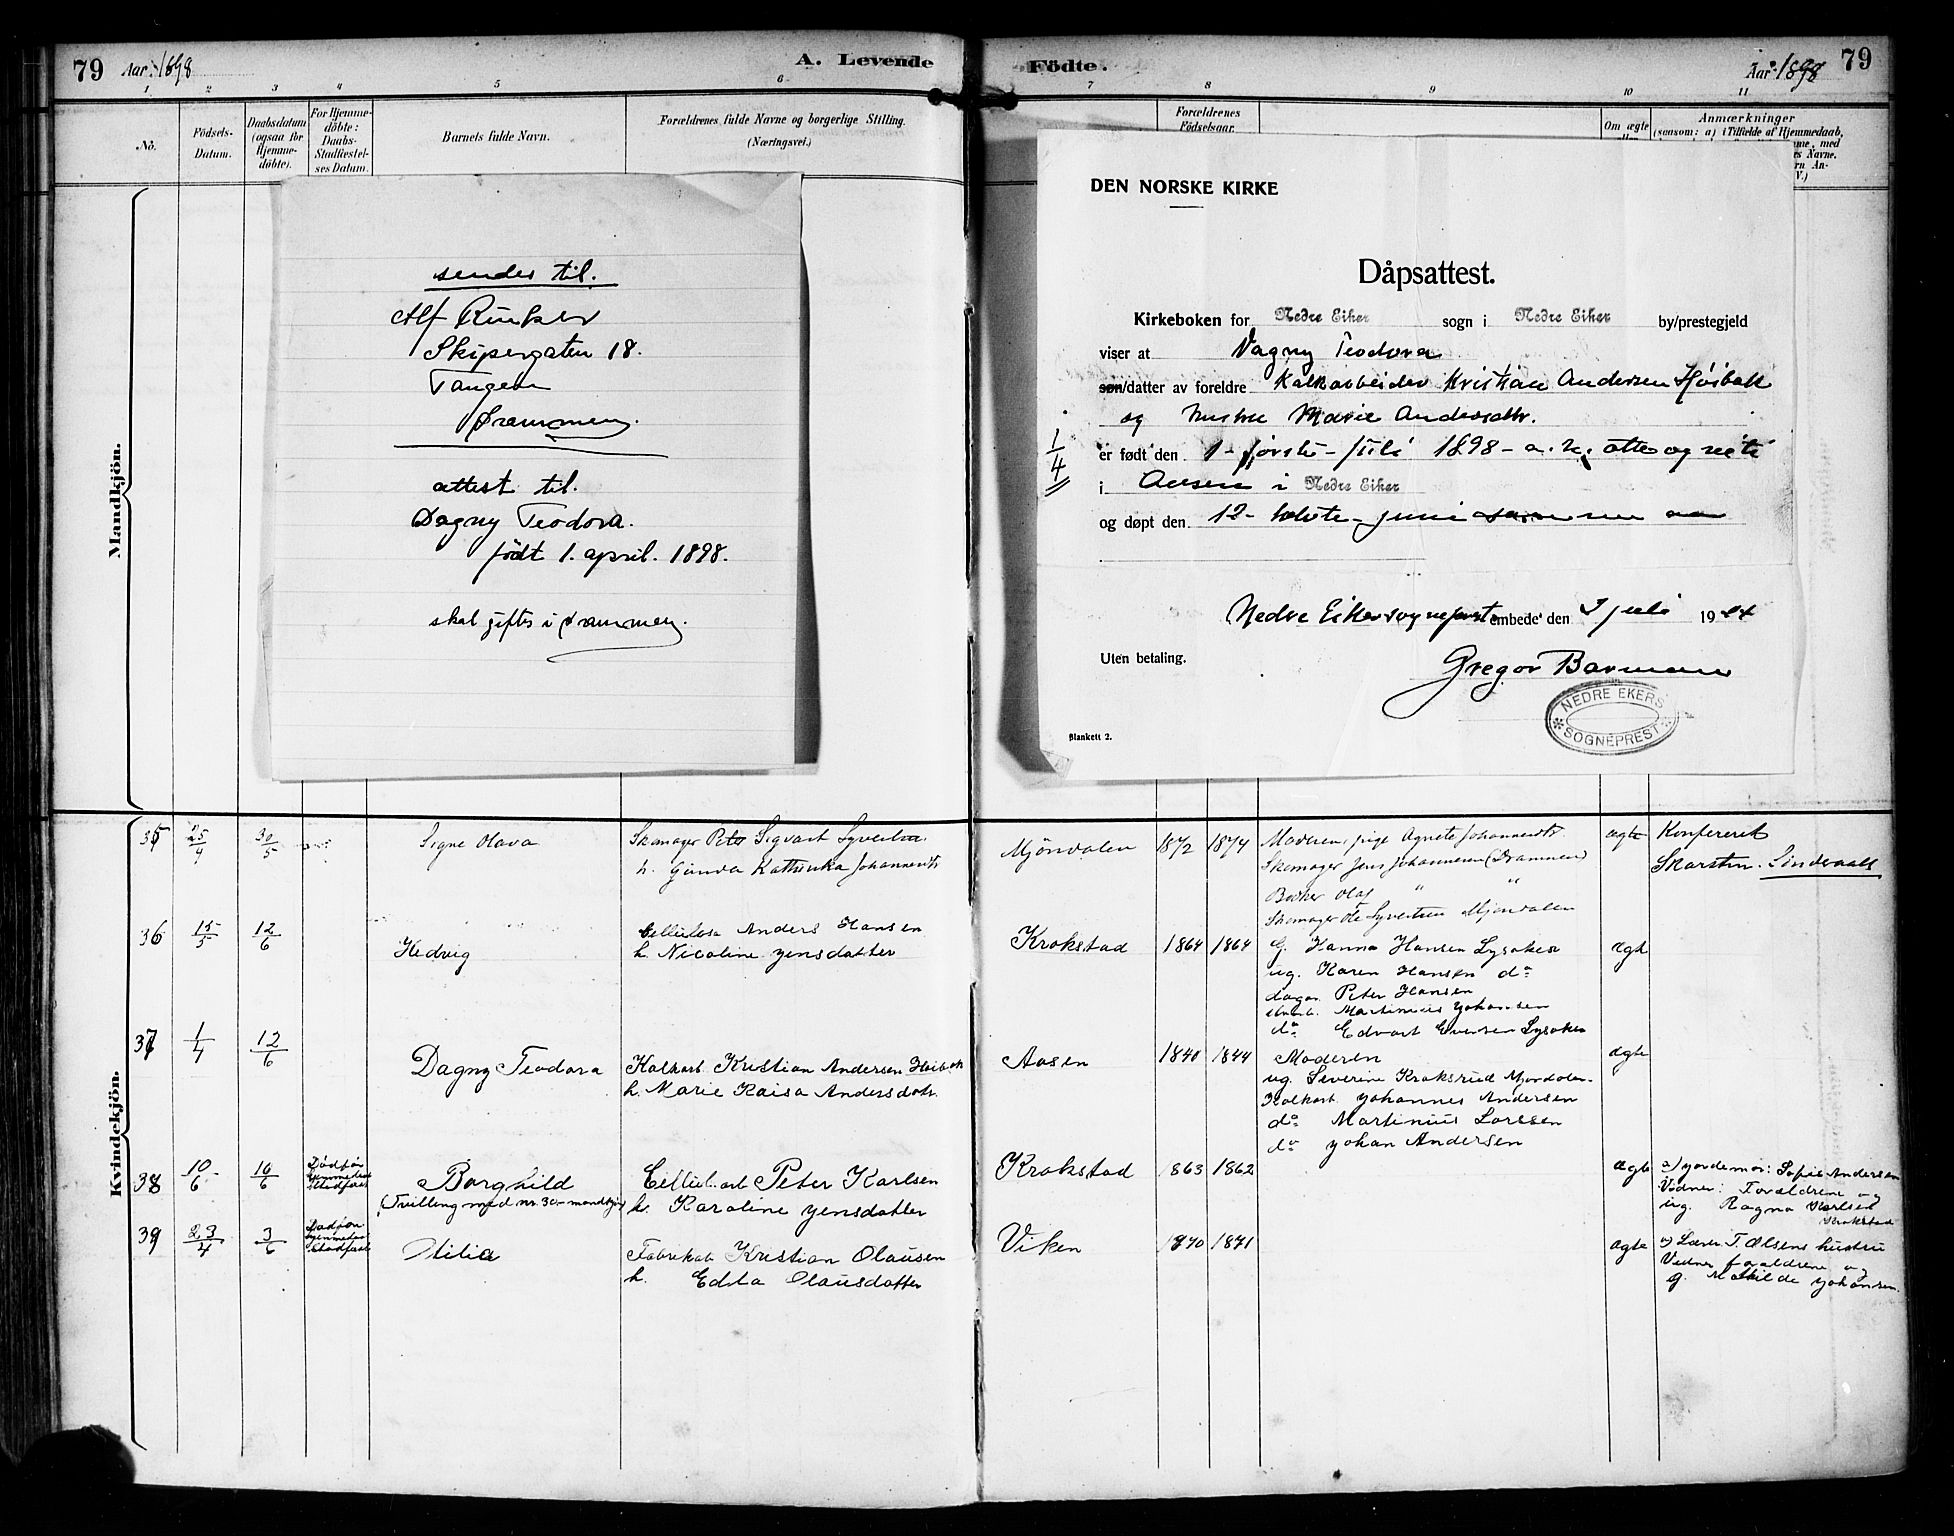 79 Aar: 1898
A. Levende
Födte.
Aar 1898 79
1 2 3 4 5 6 7 8 9 10 11
No.
Födsels-
Datum.
Daabsdatum
(ogsaa for
Hjemme-
döbte).
For Hjemme-
döbte:
Daabs-
Stadfæstel-
ses Datum.
Barnets fulde Navn.
Forældrenes fulde Navne og borgerlige Stilling.
(Næringsvei.)
Forældrenes
Födselsaar.
Om ægte
Anmærkninger
(saasom: a) i Tilfælde af Hjemmedaab,
Mandkjön.
sendes til.
Alf
Skipergaten 18.
Tangen
Drammen.
attest til.
Dagny Teodora.
født 1. april. 1898.
skal giftes i Drammen.
DEN NORSKE KIRKE
Dåpsattest.
Kirkeboken for Nedre Eiker sogn i Nedre Eiker by/prestegjeld
viser at Dagny Teodora
søn/datter av foreldre Kalkarbeider Kristian Andersen Høibak
og hustru Marie Andersdtr.
1/4
er født den 1- første - juli 1898 - a.n. otte og niti
i Aasen i Nedre Eiker
og døpt den 12- tolvte - juni samme aar
Nedre Eiker sogneprestembede den 3 juli 1924
Uten betaling.
Gregor Barman
NEDRE EKERS
SOGNEPREST
Blankett 2.
Kvindekjön.
35 25/4 30/5 Signe Olava
Skomager Peter Sigvart Syvertsen
h. Gunda Kathinka Johannesdtr
Mjöndalen 1872 1874
Moderen, pige Agnete Johannesdtr.
Skomager Jens Johannesen (Drammen)
Bödker Olaf " "
Skomager Ole Syvertsen Mjöndalen
ægte Konfereret
Skarsten. Sindvaals
36 15/5 12/6 Hedvig
Cellulosa Anders Hansen
h. Nicoline Jensdatter
Krokstad 1864 1864
G. Hanna Hansen Lysaker
ug. Karen Hansen do
dagar. Peter Hansen
Martinius Johansen
do Edvart Evensen Lysaker
ægte
37 1/4 12/6 Dagny Teodora
Kalkarb. Kristian Andersen Höibak
h. Marie Kaisa Andersdatr.
Aasen 1840 1844
Moderen
ug. Severine Kroksrud Mjöndalen
Kalkarb. Johannes Andersen
do Martinius Larssen
do Johan Andersen
ægte
38 10/6 10/6
Borghild
(Tvilling med nr. 30 mandkjön)
Cellul. arb. Peter Karlsen
h. Karoline Jensdatter
Krokstad 1863 1862
ægte a) Jordemor: Sofie Andersen
Vidner: Forældrene og
ug. Ragna Karlsen
Krokstad
39 23/4 3/6
Otilia
Fabrikab. Kristian Olausen
h. Edda Olausdatter
Viken 1870 1871
ægte a) Lærer T. Olsens hustru
Vidner forældrene og
g. Mathilde Johansen.